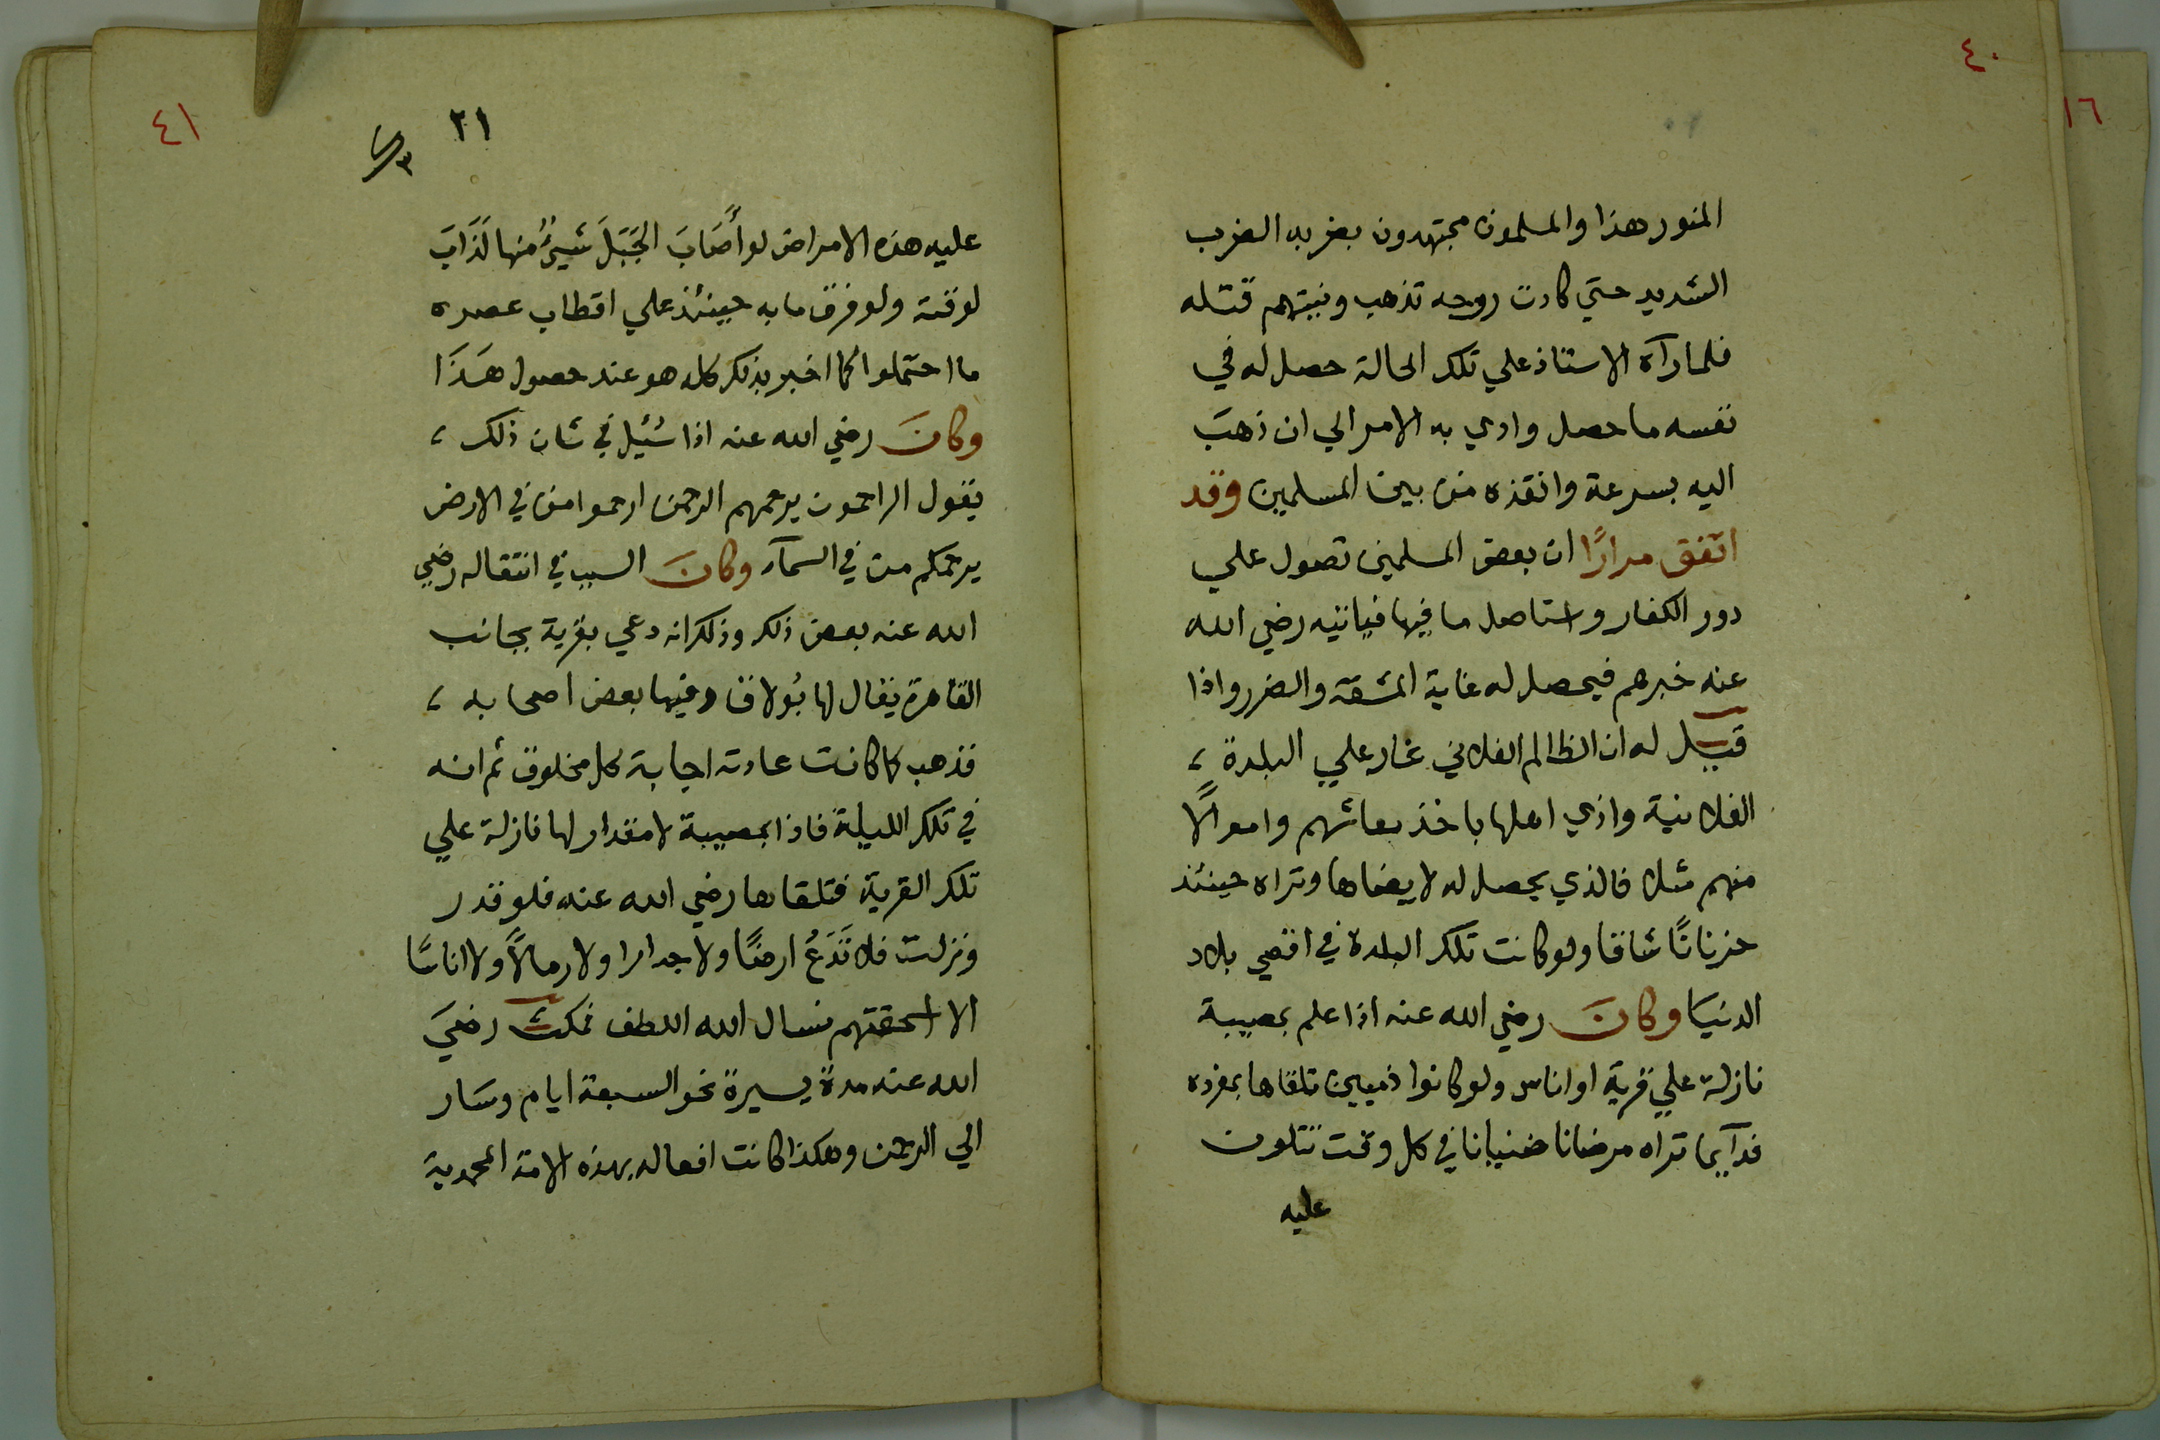 ٤٠
١٦
المنور هذا والمسلمون مجتهدون بضربه الضرب
الشديد حتي كادت روحه تذهب ونيتهم قتله
فلما رآه الاستاذ علي تلك الحالة حصل له في
نفسه ما حصل وادي به الامر الي ان ذهبَ
اليه بسرعة وانقذه من بين المسلمين وقد
اتفق مرارًا ان بعض المسلمين تصول علي
دور الكفار واستاصل ما فيها فياتيه رضي الله
عنه خبرهم فيحصل له غاية المشقة والضرر واذا
قيل له ان الظالم الفلاني غار علي البلدة ،
الفلانية واذي اهلها باخذ بهائهم واموالًا
منهم مثلا فالذي يحصل له لا يضاها وتراه حينئذ
حزنانًا شاقا ولو كانت تلك البلدة في اقصي بلاد
الدنيَا وكانَ رضي الله عنه اذا علم بمصيبة
نازلة علي قرية او اناس ولو كانوا ذميين تلقاها بمفرده
فدآيما تراه مرضانا ضنيانا في كل وقت تتلون
عليه
٤١
٢١
عليه هذه الامراض لو أَصَابَ الجَبَلَ شَيْءٌ منها لَذَابَ
لوقته ولو فرق ما به حينئذ علي اقطاب عصره
ما احتملوا كما اخبر بذلك كله هو عند حصول هَذَا
وكانَ رضي الله عنه اذا سُئِل في شان ذلك ،
يقول الراحمون يرحمهم الرحمن ارحموا من في الارض
يرحمكم من في السمآء وكانَ السبب في انتقاله رضي
الله عنه بعض ذلك وذلك انه دعي بقرية بجانب
القاهرة يقال لها بُولاق وفيها بعض اصحابه ،
فذهب كما كانت عادته اجابة كل مخلوق ثم انه
في تلك الليلة فاذا بمصيبة لا مقدار لها نازلة علي
تلك القرية فتلقاها رضي الله عنه فلو قدر
ونزلت فلا تَدَعُ ارضًا ولا جدارا ولا رمالًا ولا اناسًا
الا اسحقتهم نسال الله اللطف فمكث رضيَ
الله عنه مدة يسيرة نحو السبعة ايام وسَار
الي الرحمن وهكذا كانت افعاله بهذه الامة المحمدية